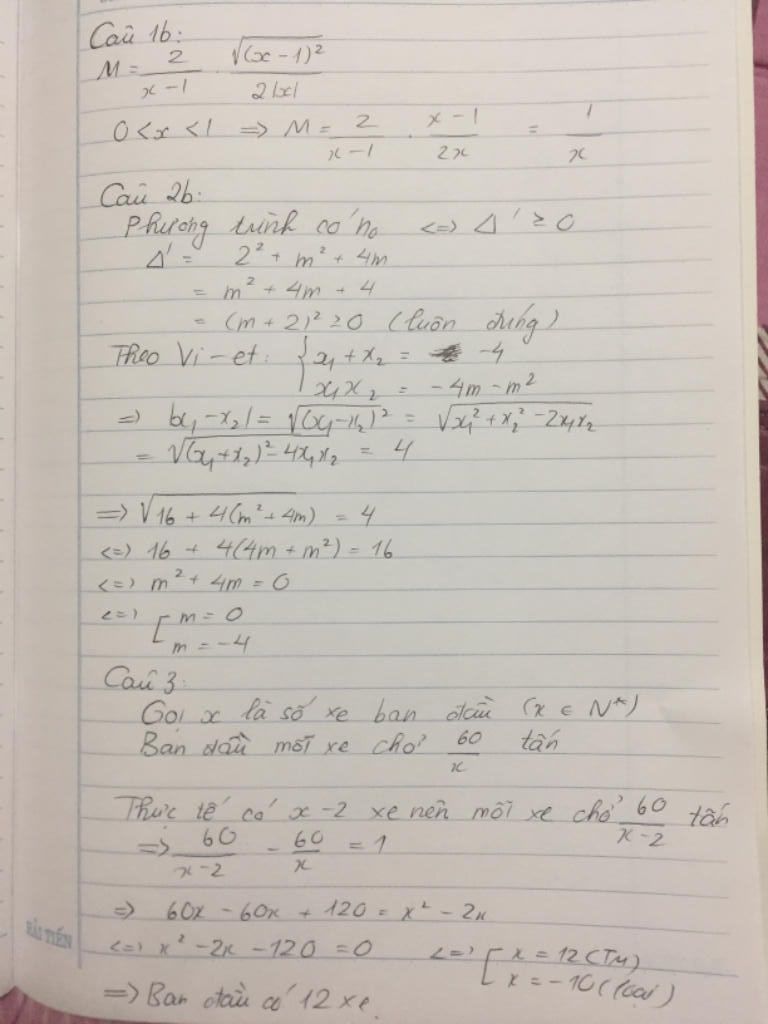 Câu 1b:
M = \frac{2}{x-1} \cdot \frac{\sqrt{(x-1)^2}}{2|x|}
0 < x < 1 => M = \frac{2}{x-1} \cdot \frac{x-1}{2x} = \frac{1}{x}
Câu 2b:
Phương trình có n₀ <=> Δ' ≥ 0
Δ' = 2² + m² + 4m
= m² + 4m + 4
= (m + 2)² ≥ 0 (luôn đúng)
Theo Vi-et: { x₁ + x₂ = -4
x₁x₂ = -4m - m²
=> |x₁ - x₂| = √(x₁-x₂)² = √x₁² + x₂² - 2x₁x₂
= √(x₁+x₂)² - 4x₁x₂ = 4
=> √16 + 4(m² + 4m) = 4
<=> 16 + 4(4m + m²) = 16
<=> m² + 4m = 0
<=> [ m = 0
m = -4
Câu 3:
Gọi x là số xe ban đầu (x ∈ N*)
Ban đầu mỗi xe chở \frac{60}{x} tấn
Thực tế có x - 2 xe nên mỗi xe chở \frac{60}{x-2} tấn
=> \frac{60}{x-2} - \frac{60}{x} = 1
=> 60x - 60x + 120 = x² - 2x
<=> x² - 2x - 120 = 0 <=> [ x = 12 (TM)
x = -10 (loại)
=> Ban đầu có 12 xe.
HẢI TIẾN